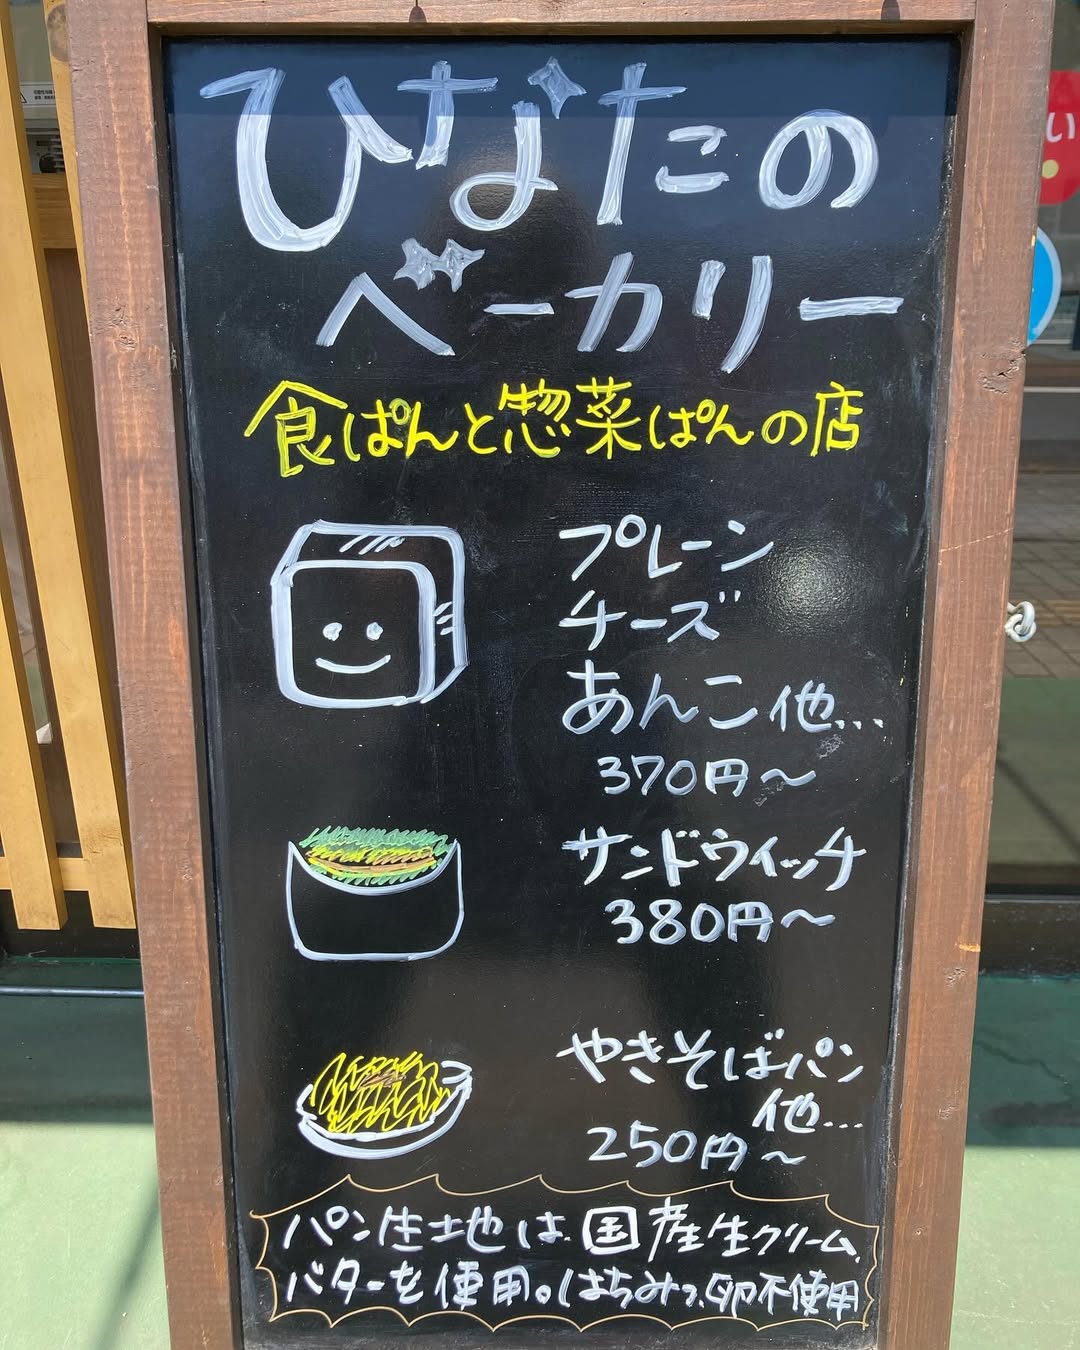 ひなたの
ベーカリー
食ぱんと惣菜ぱんの店
プレーン
チーズ
あんこ他...
370円〜
サンドウィッチ
380円〜
やきそばパン
他...
250円〜
パン生地は国産生クリーム、
バターを使用。はちみつ、卵不使用
い